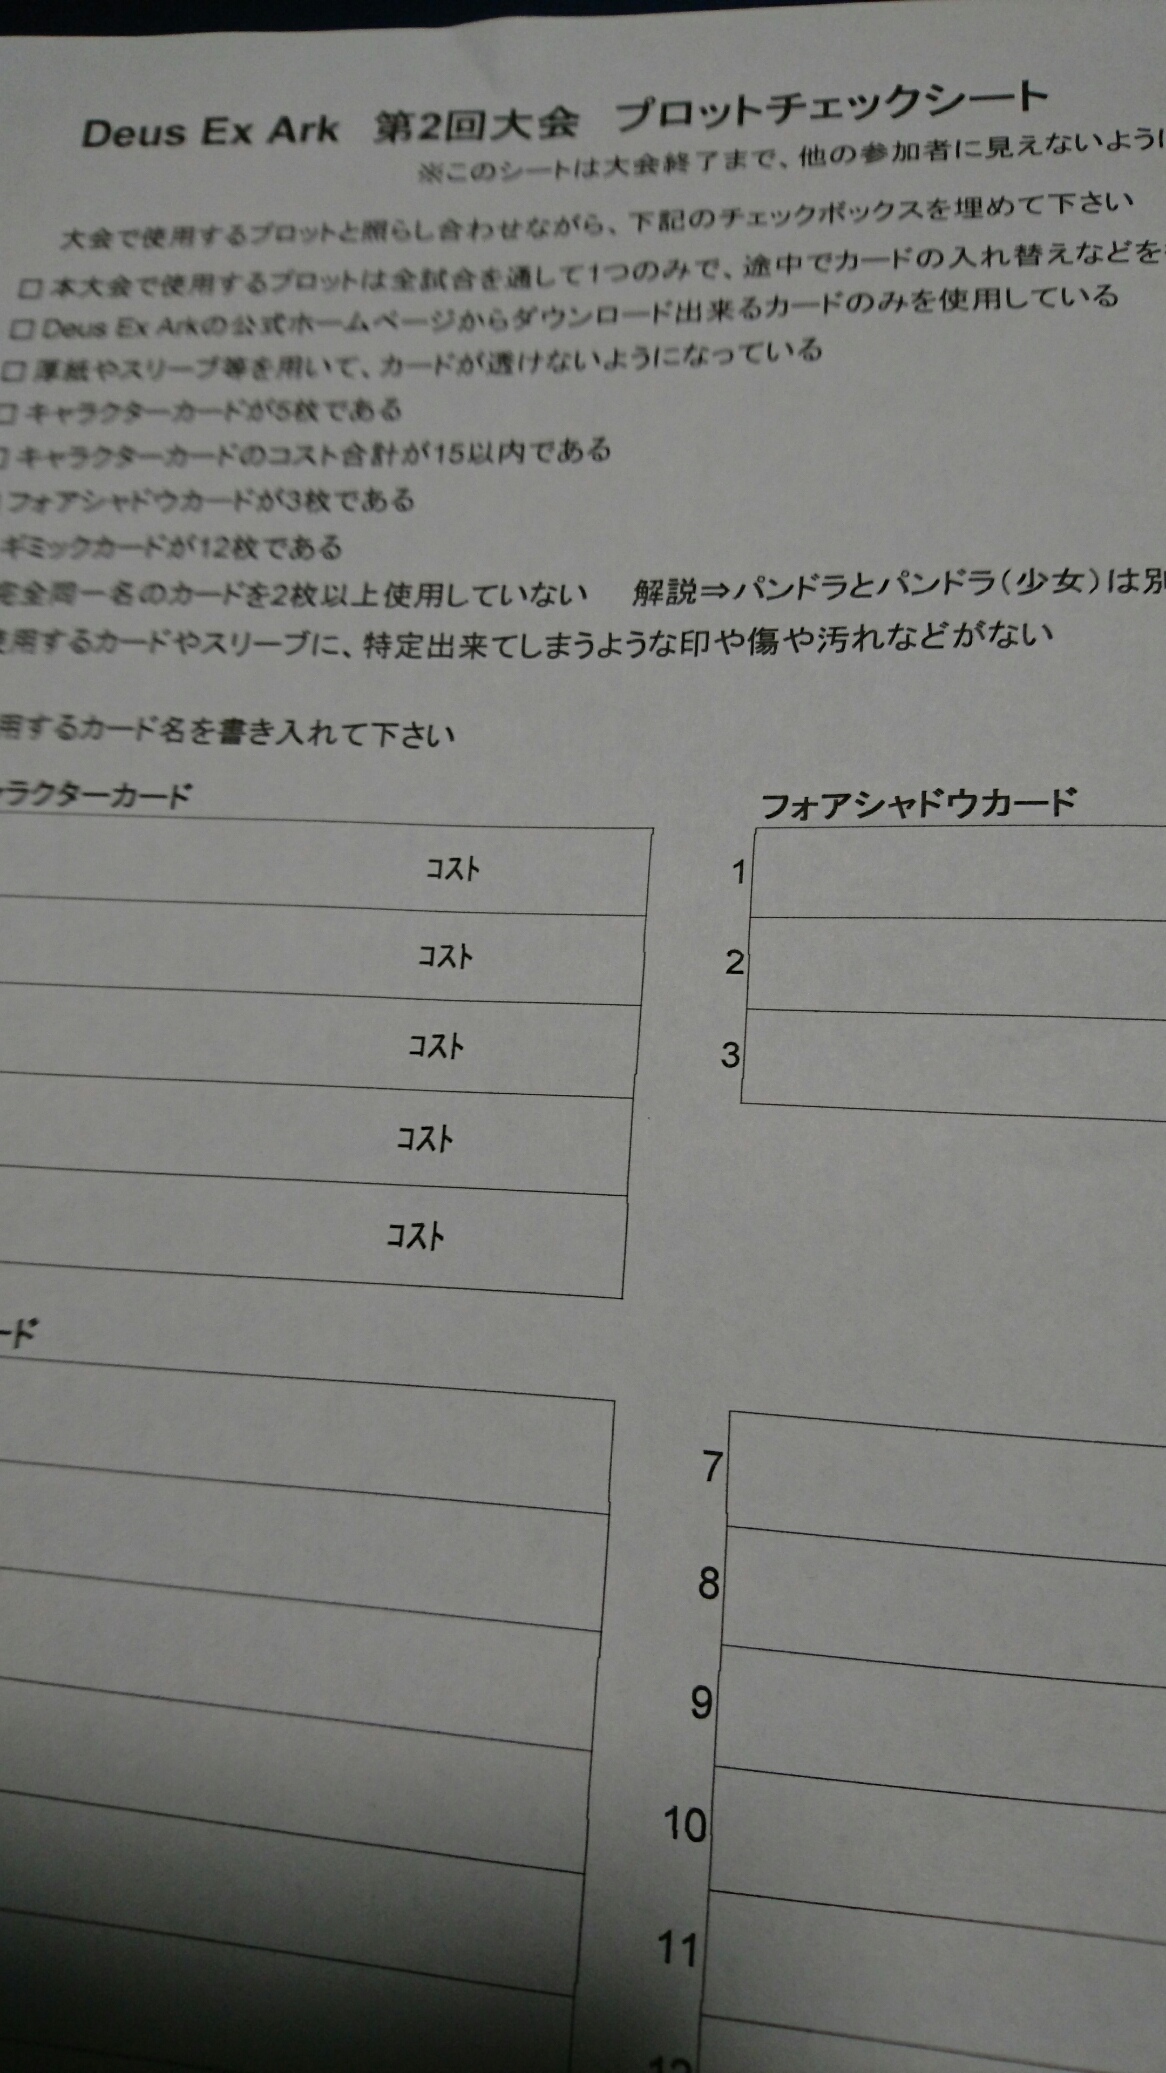 Deus Ex Ark 第2回大会 プロットチェックシート
※このシートは大会終了まで、他の参加者に見えないように
大会で使用するプロットと照らし合わせながら、下記のチェックボックスを埋めて下さい
□ 本大会で使用するプロットは全試合を通して1つのみで、途中でカードの入れ替えなどを
□ Deus Ex Arkの公式ホームページからダウンロード出来るカードのみを使用している
□ 厚紙やスリーブ等を用いて、カードが透けないようになっている
□ キャラクターカードが5枚である
□ キャラクターカードのコスト合計が15以内である
フォアシャドウカードが3枚である
ギミックカードが12枚である
完全同一名のカードを2枚以上使用していない 解説⇒パンドラとパンドラ(少女)は別
使用するカードやスリーブに、特定出来てしまうような印や傷や汚れなどがない
用するカード名を書き入れて下さい
ラクターカード
コスト
コスト
コスト
コスト
コスト
フォアシャドウカード
1
2
3
ード
7
8
9
10
11
12